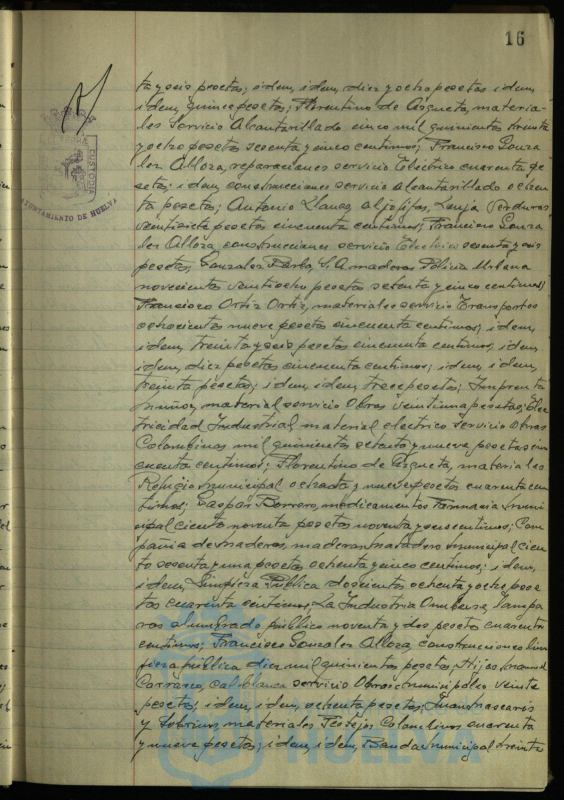 16
ta y seis pesetas; idem, idem, diez y ocho pesetas idem,
idem, quince pesetas; Florentino de Azqueta, materia-
les servicio Alcantarillado cinco mil quinientas treinta
y ocho pesetas sesenta y cinco centimos; Francisco Gonza
lez Alloza, reparaciones servicio Electrico cuarenta pe
setas; idem construcciones servicio alcantarillado ochen
ta pesetas; Antonio Llanes, aljofifas, Lonja Verduras
veintisiete pesetas cincuenta centimos; Francisco Gonza
lez Alloza, construcciones servicio Electrico sesenta y seis
pesetas, Gonzalez Barba, S.A. maderas Policia Urbana
novecientas veintiocho pesetas setenta y cinco centimos;
Francisco Ortiz Ortiz, materiales servicio Transportes
ochocientas nueve pesetas cincuenta centimos; idem,
idem, treinta y seis pesetas cincuenta centimos, idem,
idem, diez pesetas cincuenta centimos; idem, idem,
treinta pesetas; idem, idem, trece pesetas; Imprenta
Muñoz, material servicio Obras veintiuna pesetas; Elec
tricidad Industrial material electrico servicio Obras
Colombinas mil quinientas setenta y nueve pesetas cin
cuenta centimos; Florentino de Azqueta, materiales
Refugio municipal ochenta y nueve pesetas cuarenta cen
timos; Gaspar Borrero, medicamentos Farmacia muni
cipal ciento noventa pesetas noventa y seis centimos; Com
pañia de maderas, maderas Matadero Municipal cien
to sesenta y una pesetas ochenta y cinco centimos; idem,
idem, Limpieza Publica doscientas ochenta y ocho pese
tas cuarenta centimos; La Industria Onubense, lampa
ras alumbrado publico noventa y dos pesetas cuarenta
centimos; Francisco Gonzalez Alloza, construcciones lim
pieza publica diez mil quinientas pesetas, Hijos Manuel
Carrasco, cal blanca servicio Obras Municipales veinte
pesetas; idem, idem, ochenta pesetas; Juan Mascarós
y Sobrinos, materiales Festejos Colombinos cuarenta
y nueve pesetas; idem, idem, Banda Municipal treinta
AYUNTAMIENTO DE HUELVA
CUSTODIA
HUELVA